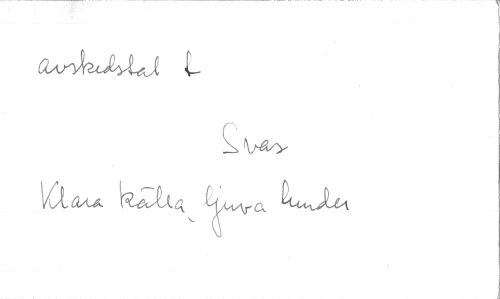 avskedstal t
Svar
Klara källa, ljuva lunder